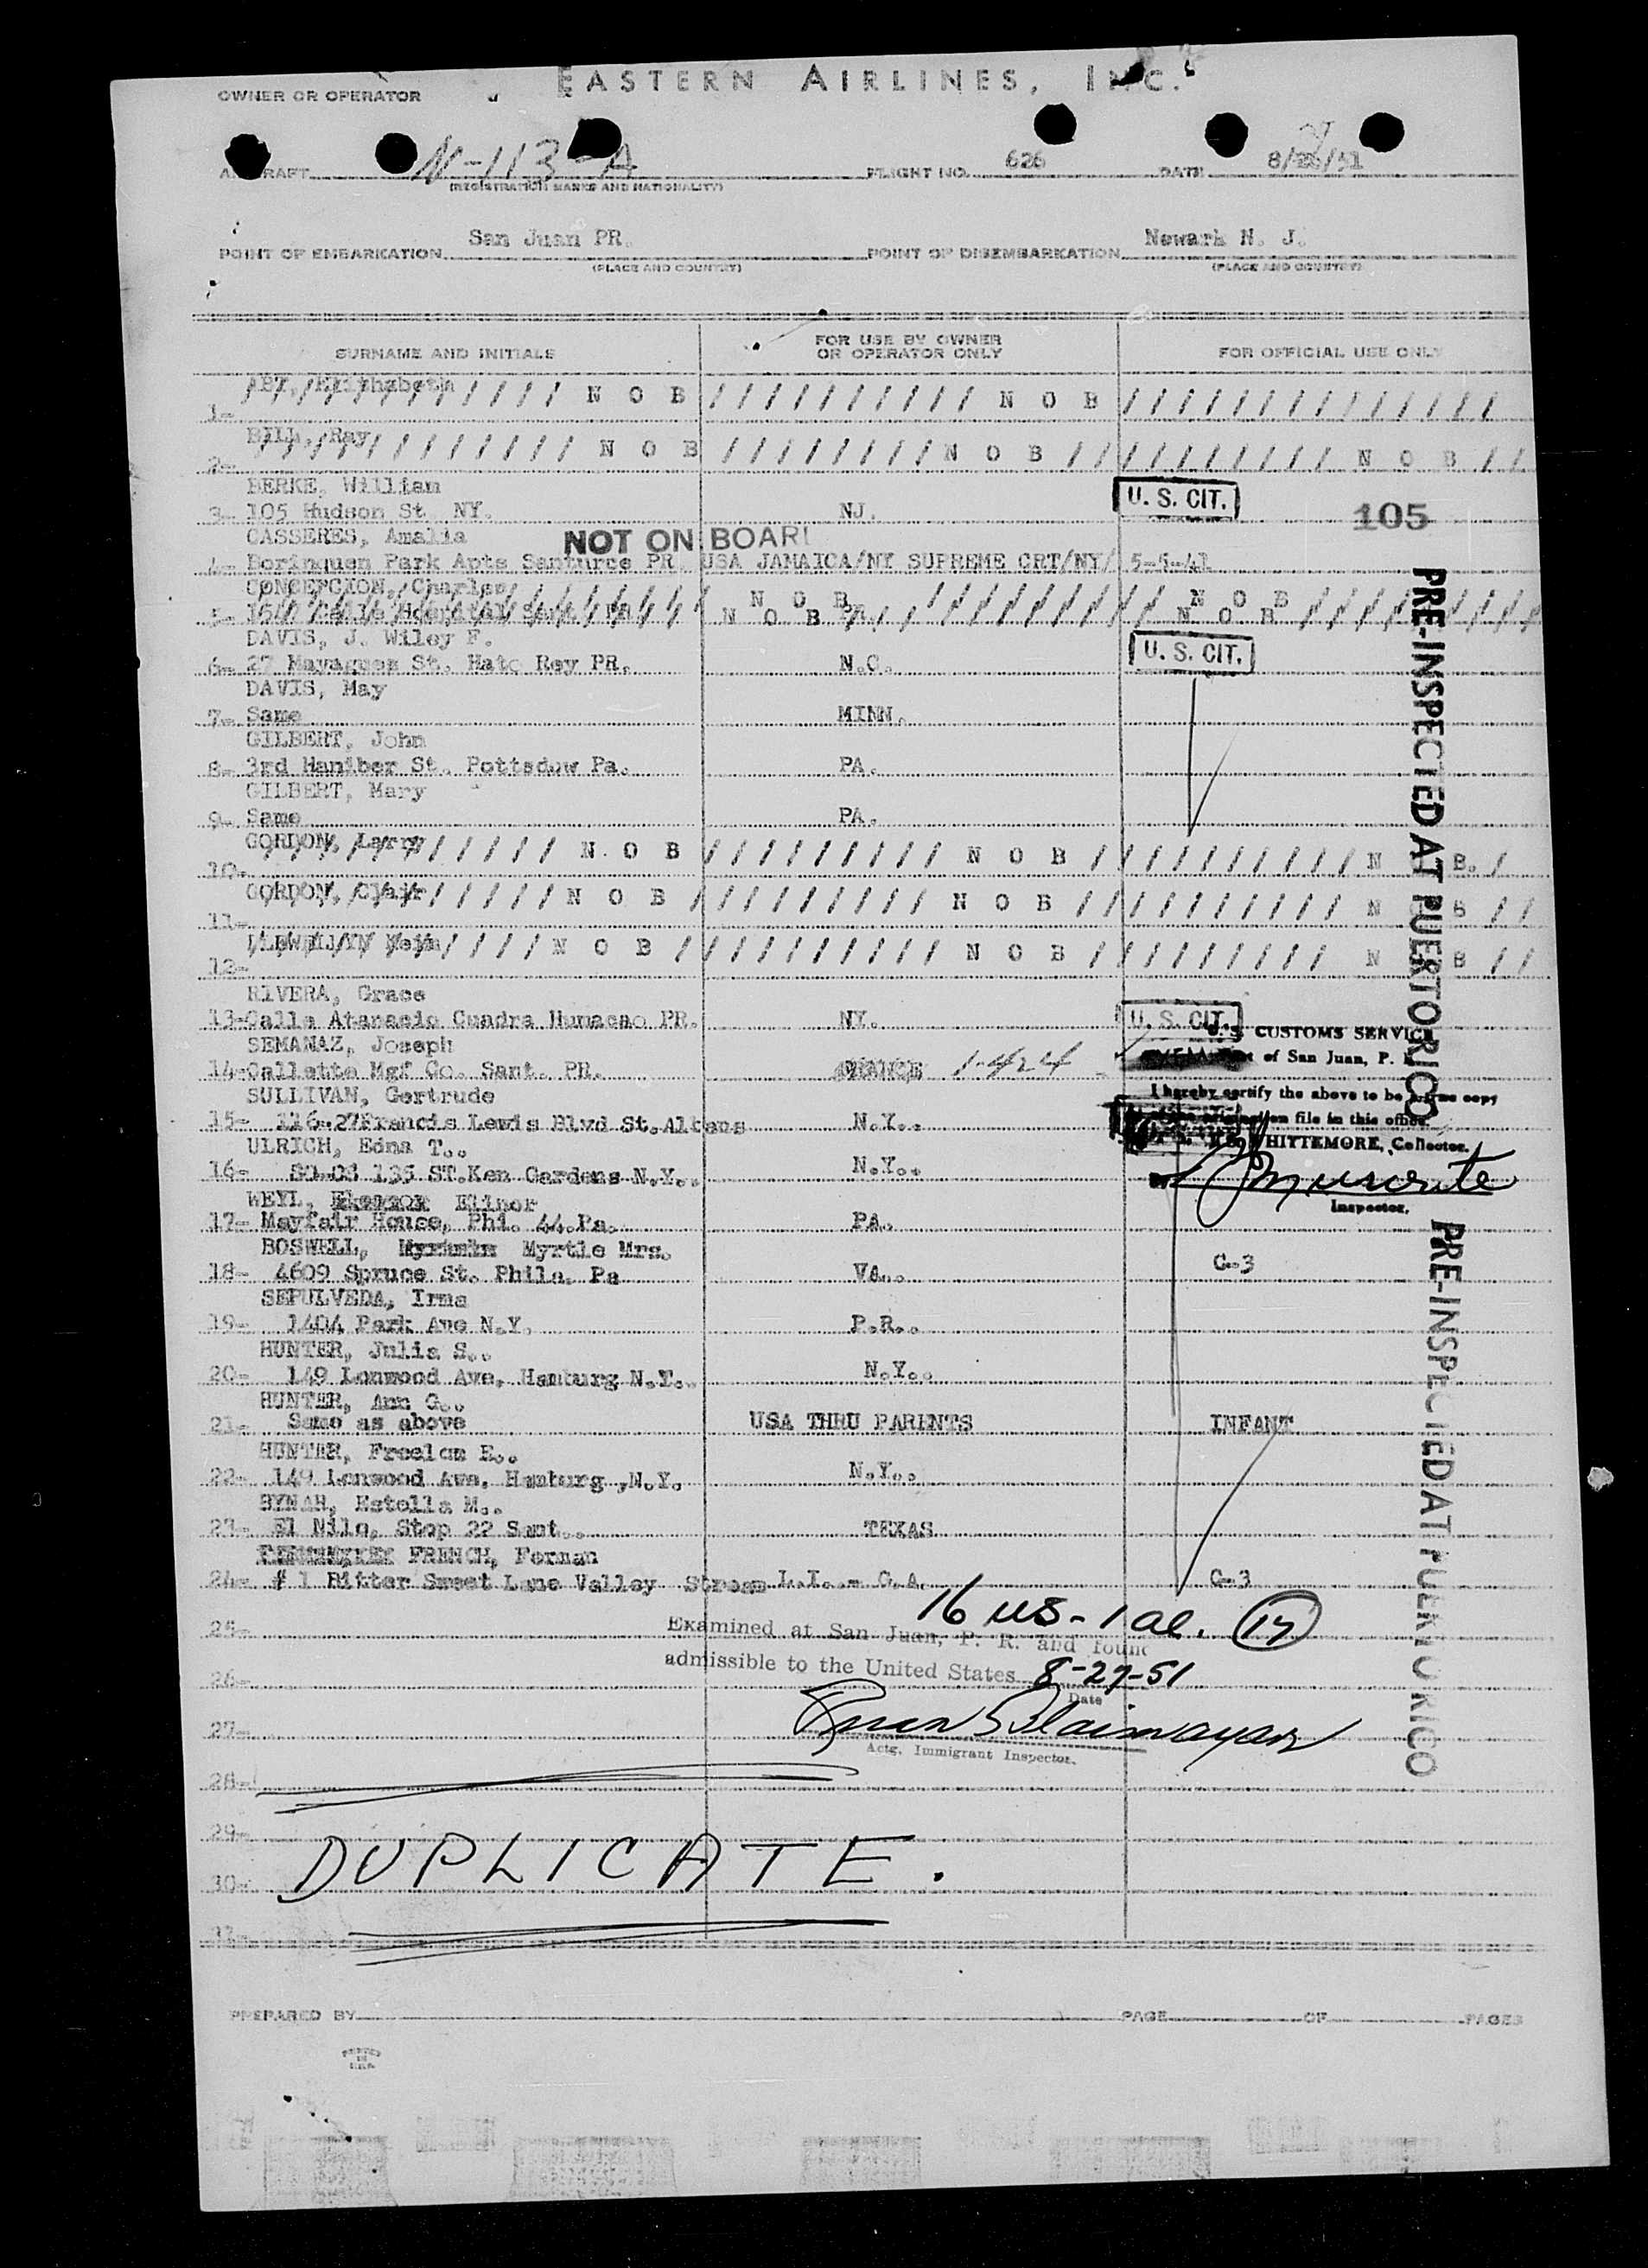 EASTERN AIRLINES, INC.
OWNER OR OPERATOR
N-113-A
FLIGHT NO. 626 DATE 8/ /51
(REGISTRATION MARKS AND NATIONALITY)
POINT OF EMBARKATION San Juan PR. POINT OF DISEMBARKATION Newark N. J.
(PLACE AND COUNTRY) (PLACE AND COUNTRY)
SURNAME AND INITIALS FOR USE BY OWNER OR OPERATOR ONLY FOR OFFICIAL USE ONLY
1- / / / / N O B / / / / / / / / / / N O B / / / / / / / / / / / / / /
BILL, Ray
2- / / / / N O B / / / / / / / / N O B / / / / / / / / / / N O B / /
BERKE, William
3- 105 Hudson St NY. NJ. U. S. CIT. 105
CASSERES, Amalia NOT ON BOARD
4- Borinquen Park Apts Santurce PR. USA JAMAICA/NY SUPREME CRT/NY/ 5-5-41
CONCEPCION, Charles N O B N O B
5- N O B N O B
DAVIS, J. Wiley F.
6- 27 Mayaguez St. Hato Rey PR. N.C. U. S. CIT.
DAVIS, May
7- Same MINN.
GILBERT, John
8- 3rd Haniber St. Pottsdow Pa. PA.
GILBERT, Mary
9- Same PA.
GORDON, Larry N O B N O B N B.
10-
GORDON, Clair N O B N O B N B
11-
N O B N O B N B
12-
RIVERA, Grace
13- Calle Atanacio Cuadra Humacao PR. NY. U. S. CIT.
SEMANAZ, Joseph
14- Callette Mgf Co. Sant. PR. 1-424
SULLIVAN, Gertrude
15- 116-27 Francis Lewis Blvd St. Albans N.Y..
ULRICH, Edna T..
16- 135 ST. Ken Gardens N.Y.. N.Y..
WEYL, Elinor
17- Mayfair House, Phi. 44. Pa. PA.
BOSWELL, Myrtle Mrs.
18- 4609 Spruce St. Phila. Pa VA.. G-3
SEPULVEDA, Irma
19- 1404 Park Ave N.Y. P.R..
HUNTER, Julia S..
20- 149 Lonwood Ave, Hamburg N.Y.. N.Y..
HUNTER, Ann G..
21- Same as above USA THRU PARENTS INFANT
HUNTER, Freelon E..
22- 149 Lonwood Ave. Hamburg ,N.Y. N.Y..
Estella M..
23- El Nilo, Stop 22 Sant.. TEXAS
FRENCH, Fernan
24- # 1 Bitter Sweet Lane Valley Stream L.I.. - C.A. G-3
U.S. CUSTOMS SERVICE
of San Juan, P. R.
I hereby certify the above to be a true copy
on file in this office.
WHITTEMORE, Collector.
Inspector.
PRE-INSPECTED AT PUERTO RICO
PRE-INSPECTED AT PUERTO RICO
16 US - 1 al. 17
25- Examined at San Juan, P. R. and found
26- admissible to the United States 8-27-51
Date
27-
Actg. Immigrant Inspector.
28-
29-
DUPLICATE.
30-
31-
PREPARED BY PAGE OF PAGES
PRINTED
IN
U.S.A.